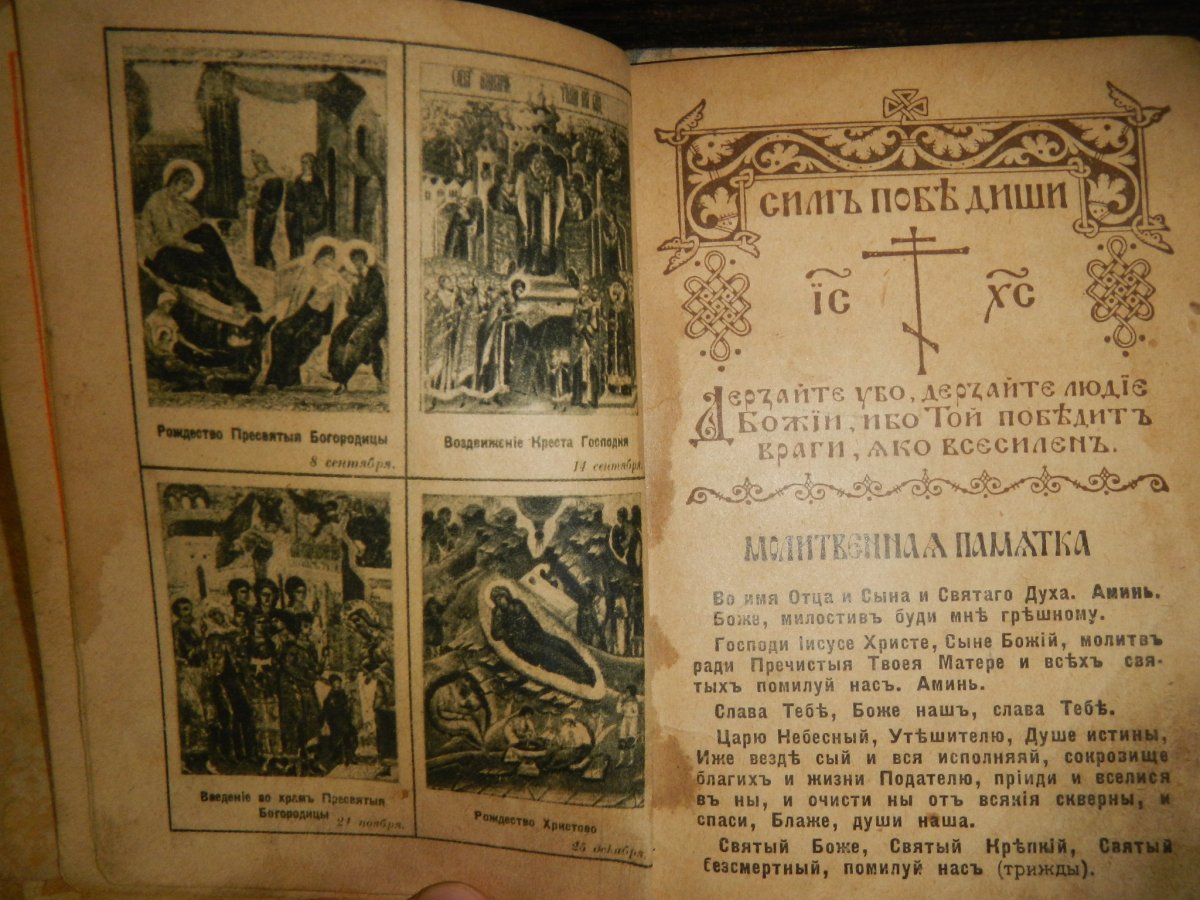 Рождество Пресвятыя Богородицы
8 сентября.
Воздвиженіе Креста Господня
14 сентября.
Введеніе во храмъ Пресвятыя
Богородицы
21 ноября.
Рождество Христово
25 декабря.
СИМЪ ПОБѢДИШИ
І҃С Х҃С
Дерзайте убо, дерзайте людіе
Божіи, ибо Той победитъ
враги, яко всесиленъ.
МОЛИТВЕННАЯ ПАМЯТКА
Во имя Отца и Сына и Святаго Духа. Аминь.
Боже, милостив буди мнѣ грѣшному.
Господи Іисусе Христе, Сыне Божій, молитвъ
ради Пречистыя Твоея Матере и всѣхъ свя-
тыхъ помилуй насъ. Аминь.
Слава Тебѣ, Боже нашъ, слава Тебѣ.
Царю Небесный, Утѣшителю, Душе истины,
Иже вездѣ сый и вся исполняяй, сокровище
благихъ и жизни Подателю, пріиди и вселися
въ ны, и очисти ны отъ всякія скверны, и
спаси, Блаже, души наша.
Святый Боже, Святый Крѣпкій, Святый
Безсмертный, помилуй насъ (трижды).